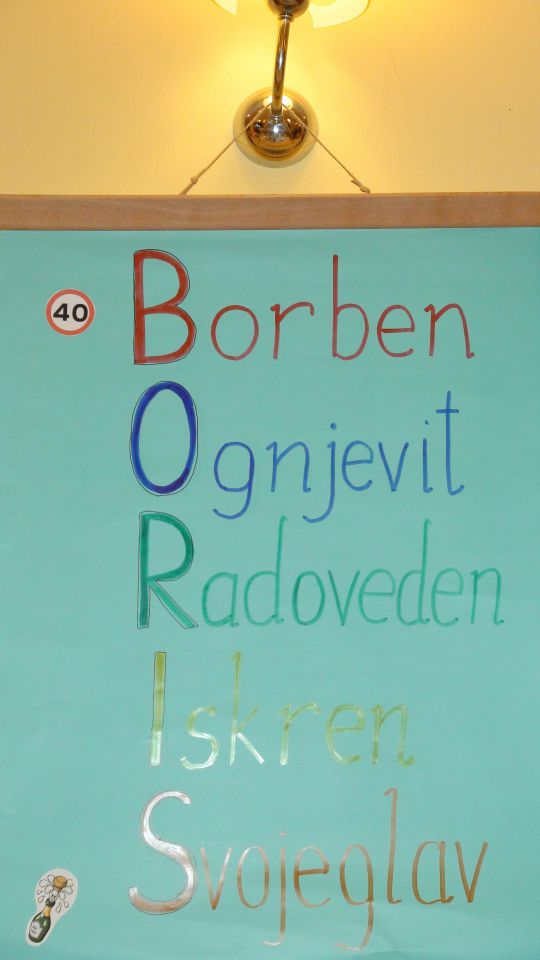 40
Borben
Ognjevit
Radoveden
Iskren
Svojeglav